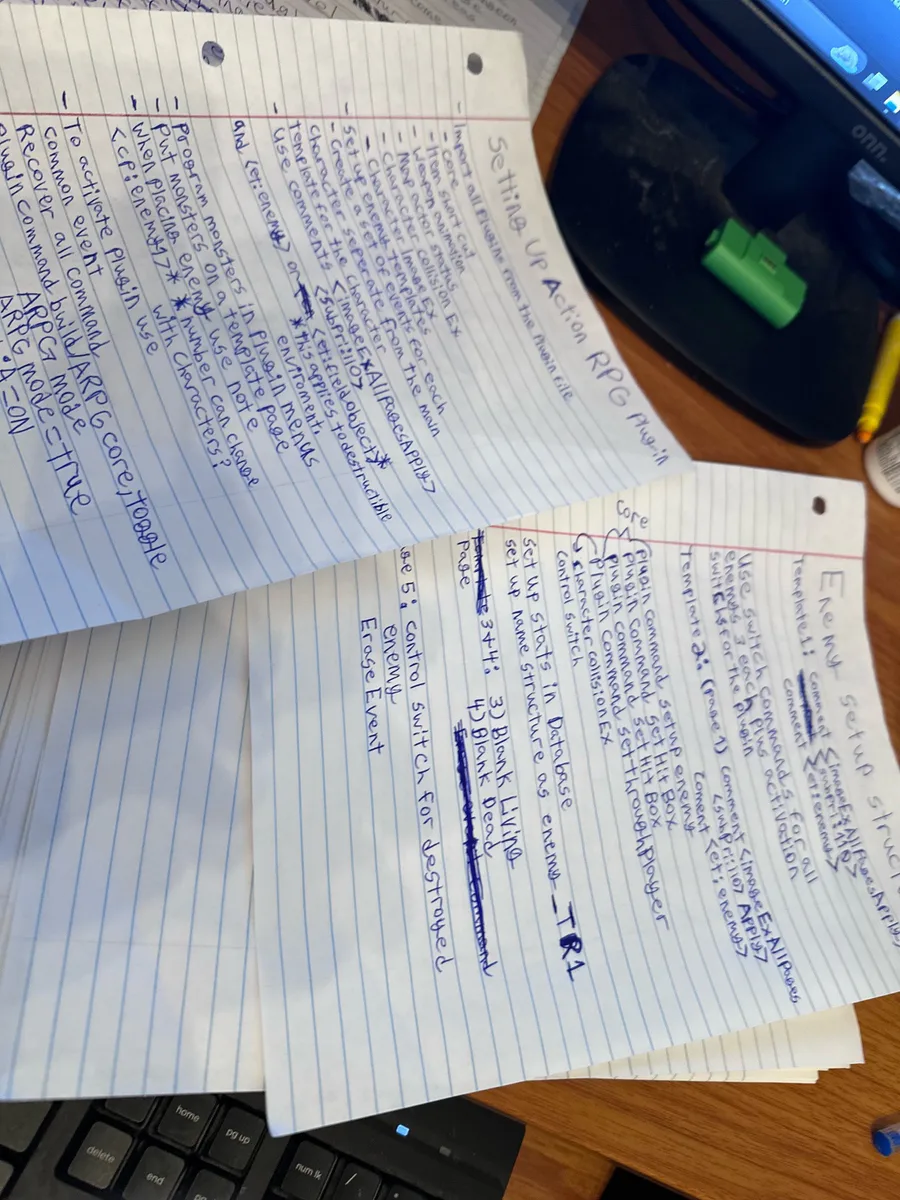 Setting Up Action RPG Plug-in
- Import all Plugins from the Plugin File
- core short cut
- Item animation
- Weapon status Ex.
- Map actor collision Ex
- Character Images for each
- Character templates
- Set up enemy
- Create a set of events from the main
character for the character
template seperate
- Use comments <imageExAllPagesApply>
<subpri:110>
and <et:enemy> or <et:fieldobject>*
*this applies to destructible
environments
- Program monsters in plugin menus
- Put monsters on a template page
- When placing enemy use note
<cp:enemy1>* *number can change
with characters?
- To activate plugin use
common event command
Recover all command build/ARPG core, toggle
Plugin command ARPG mode
ARPG mode = true
A=ON
Enemy Setup struct
Template 1: comment <imageExAllPagesApply>
<subpri:110>
comment <et:enemy>
Use switch commands for all
enemys 3 each plus activation
switchs for the plugin
Template 2: (page 1) comment <imageExAllPages
Apply>
<subpri:110>
coment <et:enemy>
core
Plugin command setup enemy
Plugin command set Hit Box
Plugin command set Hit Box
Plugin command setthroughplayer
character collision Ex
control switch
Set up stats in Database
set up name structure as enemy_TR1
Page 3+4: 3) Blank Living
4) Blank Dead
5: control switch for destroyed
enemy
Erase Event
onn.
home
pg up
delete
end
num lk
/